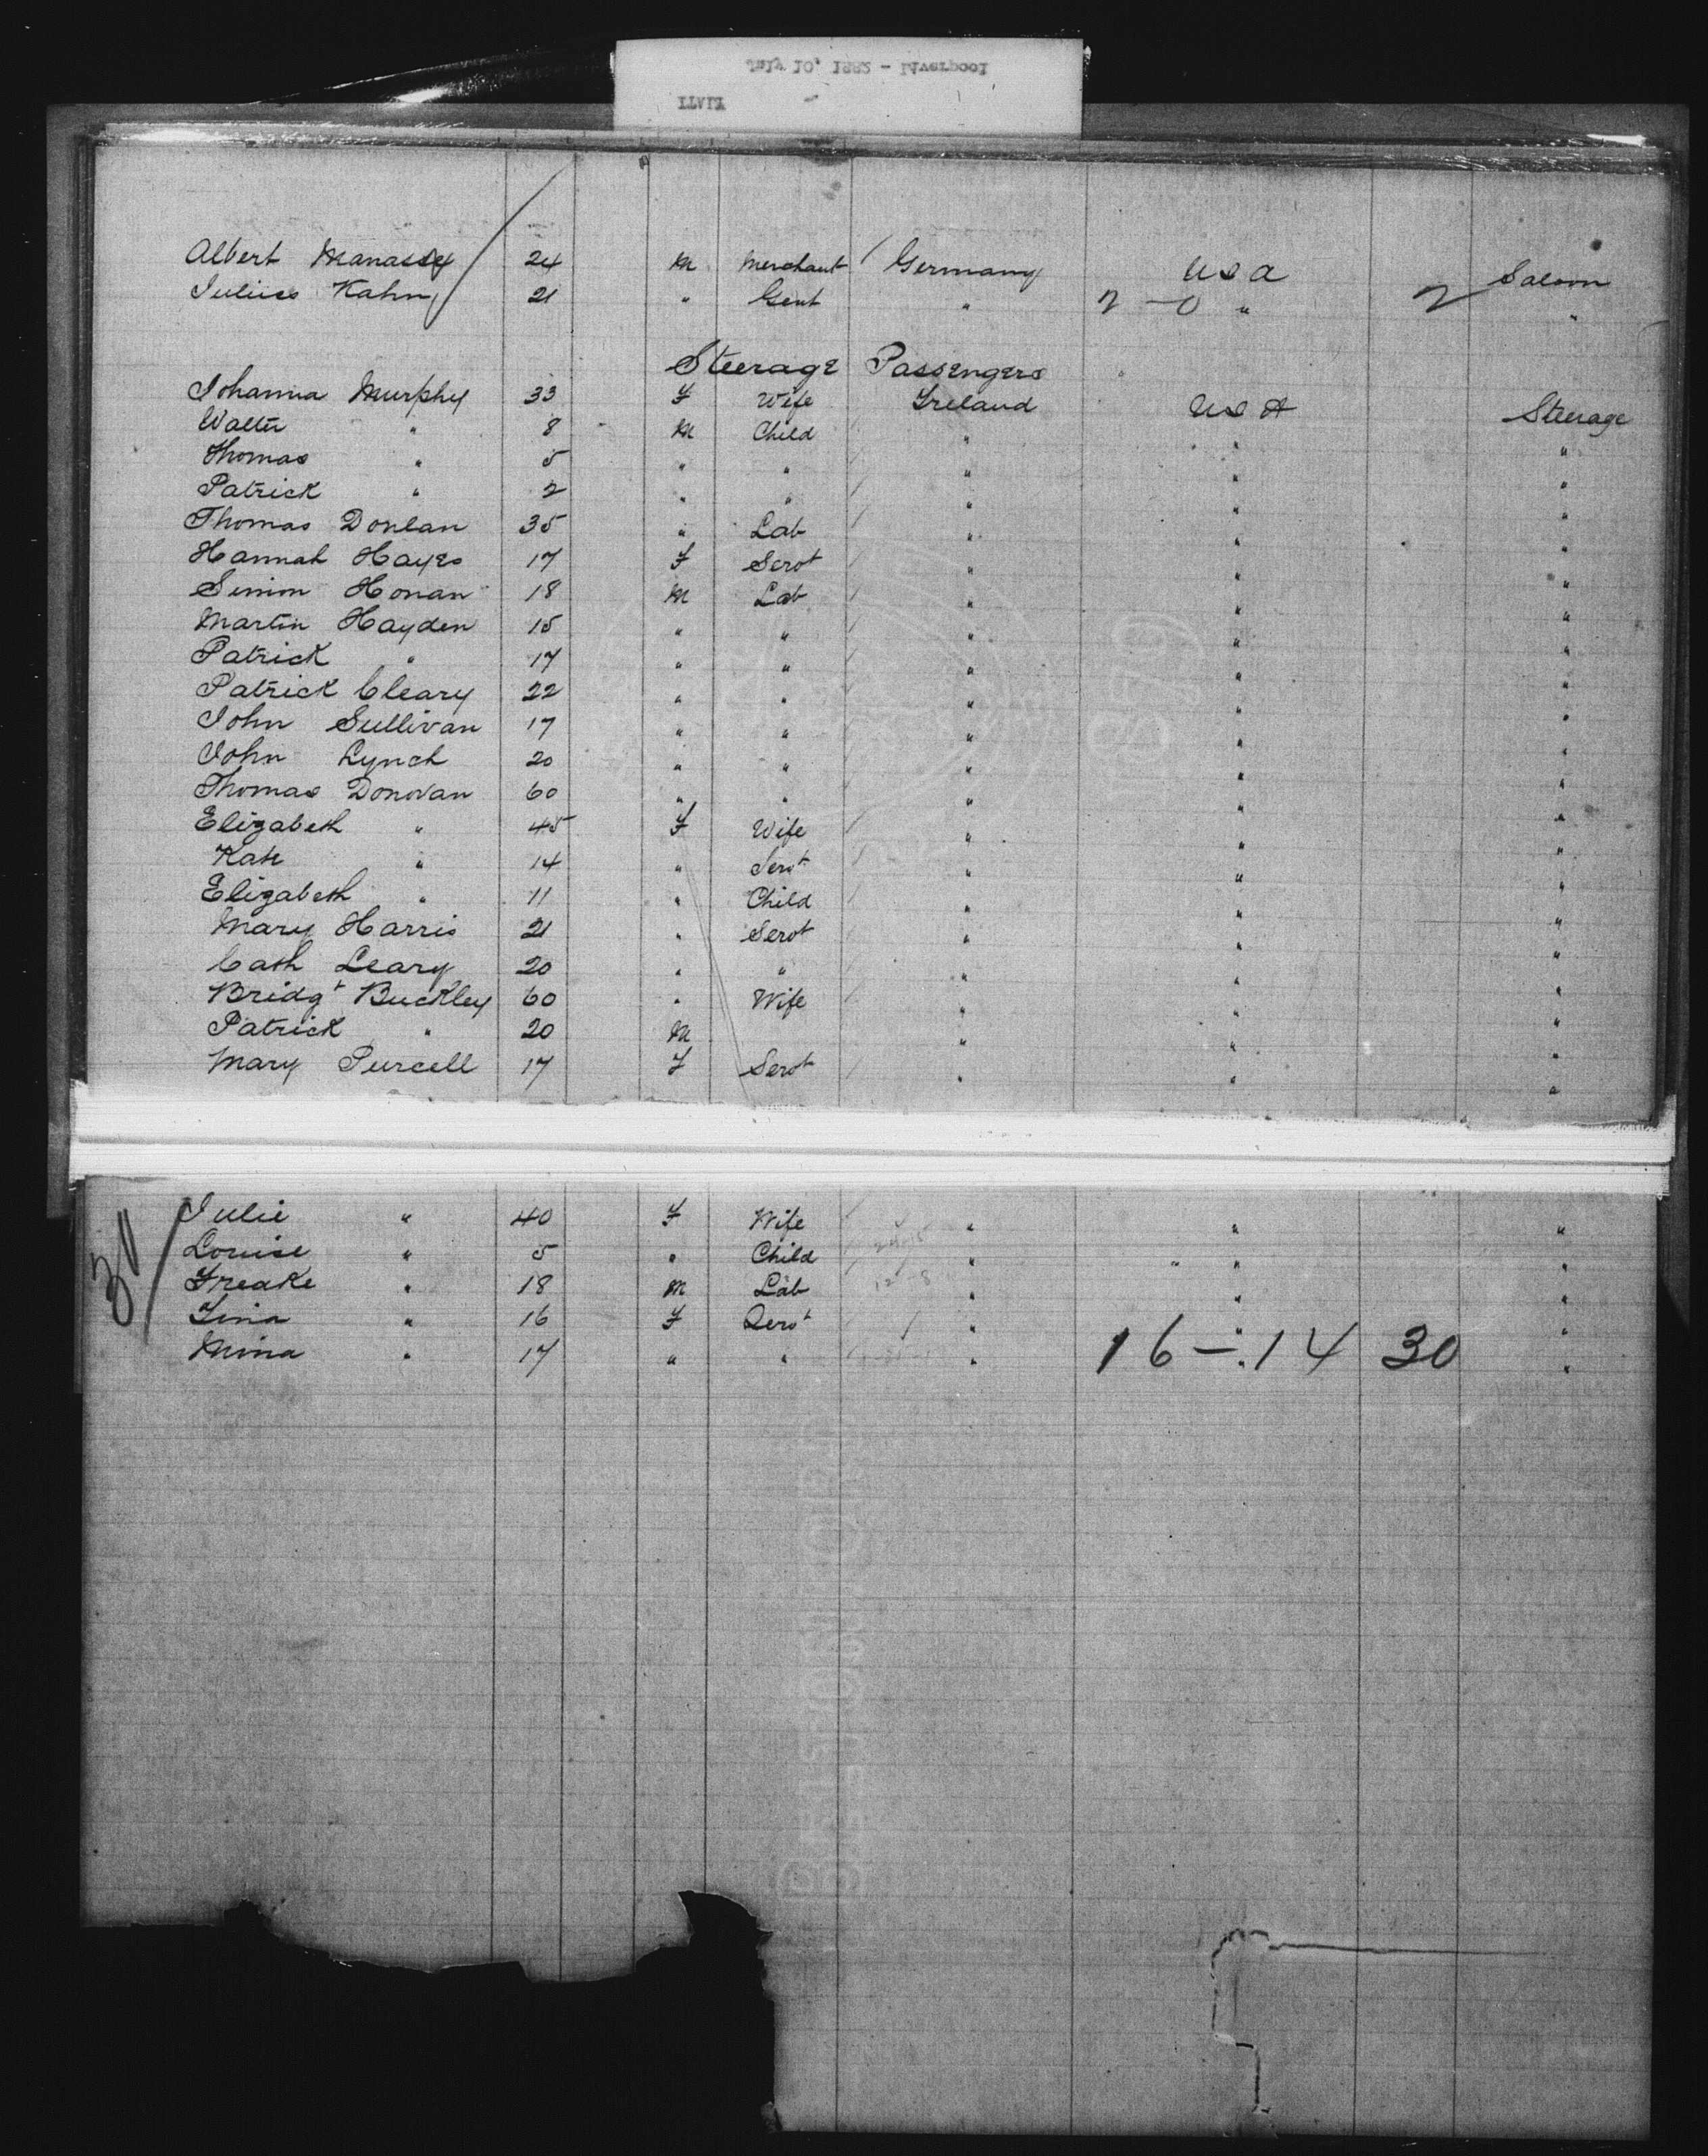 July 10, 1882 - Liverpool
Albert Manassy 24 M Merchant Germany U S A Saloon
Julius Kahn 21 " Gent " 2 - 0 " 2 "
Steerage Passengers
Johanna Murphy 33 F Wife Ireland U S A Steerage
Walter " 8 M Child " " "
Thomas " 5 " " " " "
Patrick " 2 " " " " "
Thomas Donlan 35 " Lab " " "
Hannah Hayes 17 F Servt " " "
Simon Honan 18 M Lab " " "
Martin Hayden 15 " " " " "
Patrick " 17 " " " " "
Patrick Cleary 22 " " " " "
John Sullivan 17 " " " " "
John Lynch 20 " " " " "
Thomas Donovan 60 " " " " "
Elizabeth " 45 F Wife " " "
Kate " 14 " Servt " " "
Elizabeth " 11 " Child " " "
Mary Harris 21 " Servt " " "
Cath Leary 20 " " " " "
Bridgt Buckley 60 " Wife " " "
Patrick " 20 M " " "
Mary Purcell 17 F Servt " " "
Julie " 40 F Wife " " "
Louise " 5 " Child " " "
Freake " 18 M Lab " " "
Lina " 16 F Servt " " "
Mina " 17 " " " 16 - 14 30 "